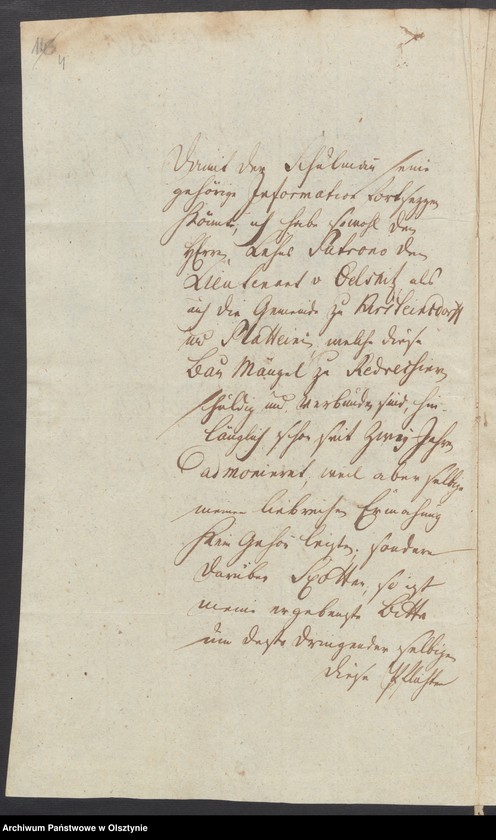 145
4
Damit der Schulmann seine
gehörige Information fortsetzen
könne, ich habe sowohl den
Herrn, Lehns Patrono den
Lieutenant v Oelsnitz als
auch die Gemeinde zu
und Platteinen, welche diese
Bau Mängel zu Redressiren
schuldig und verbunden sind, hin-
länglich schon seit Zwey Jahren
admonieret, weil aber selbige
meinen liebreichen Ermahnung
kein Gehör leisten, sondern
darüber Spotten, so ist
meine ergebenste Bitte
um desto dringender selbigen
diese Pflichten
Archiwum Państwowe w Olsztynie